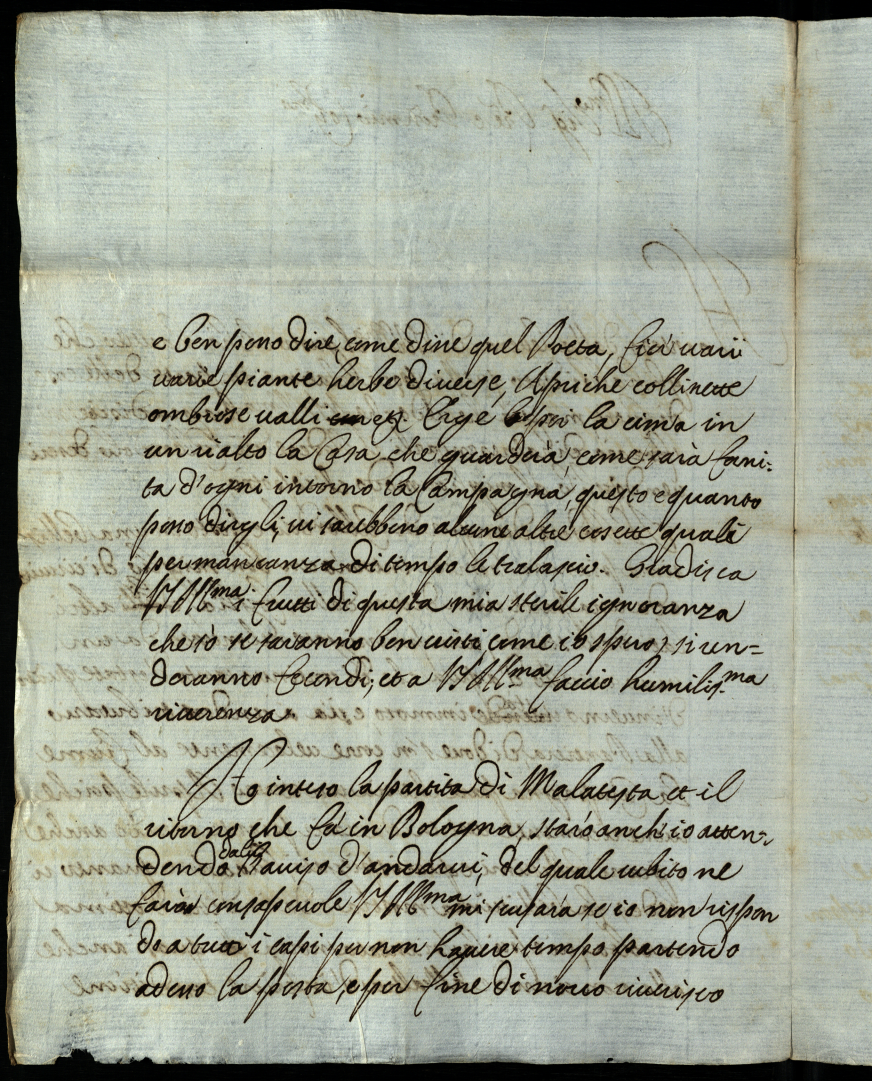 e ben posso dire, come disse quel Poeta, Cia varii
varie piante herbe diverse, Apriche collinette
ombrose valli et Erge poi la cima in
un rialto la Casa che guarderà, come sarà fani-
ta d'ogni intorno la Campagna, questo e quanto
posso dirgli, vi sarebbeno alcune altre cosette quali
per mancanza di tempo le tralascio. Gradisca
V S Ill:ma i frutti di questa mia sterile ignoranza
che sò se saranno ben visti come io spero, si ren=
deranno fecondi; et a V S Ill:ma faccio humilis:ma
riverenza
Ho inteso la partita di Malatesta et il
ritorno che fà in Bologna, starò anch'io atten-
dendo l'aviso d'andarvi, del quale subito ne
farò consapevole V S Ill:ma, mi scusarà se io non rispon
do a tutti i capi per non havere tempo partendo
adesso la posta, e per fine di novo riverisco